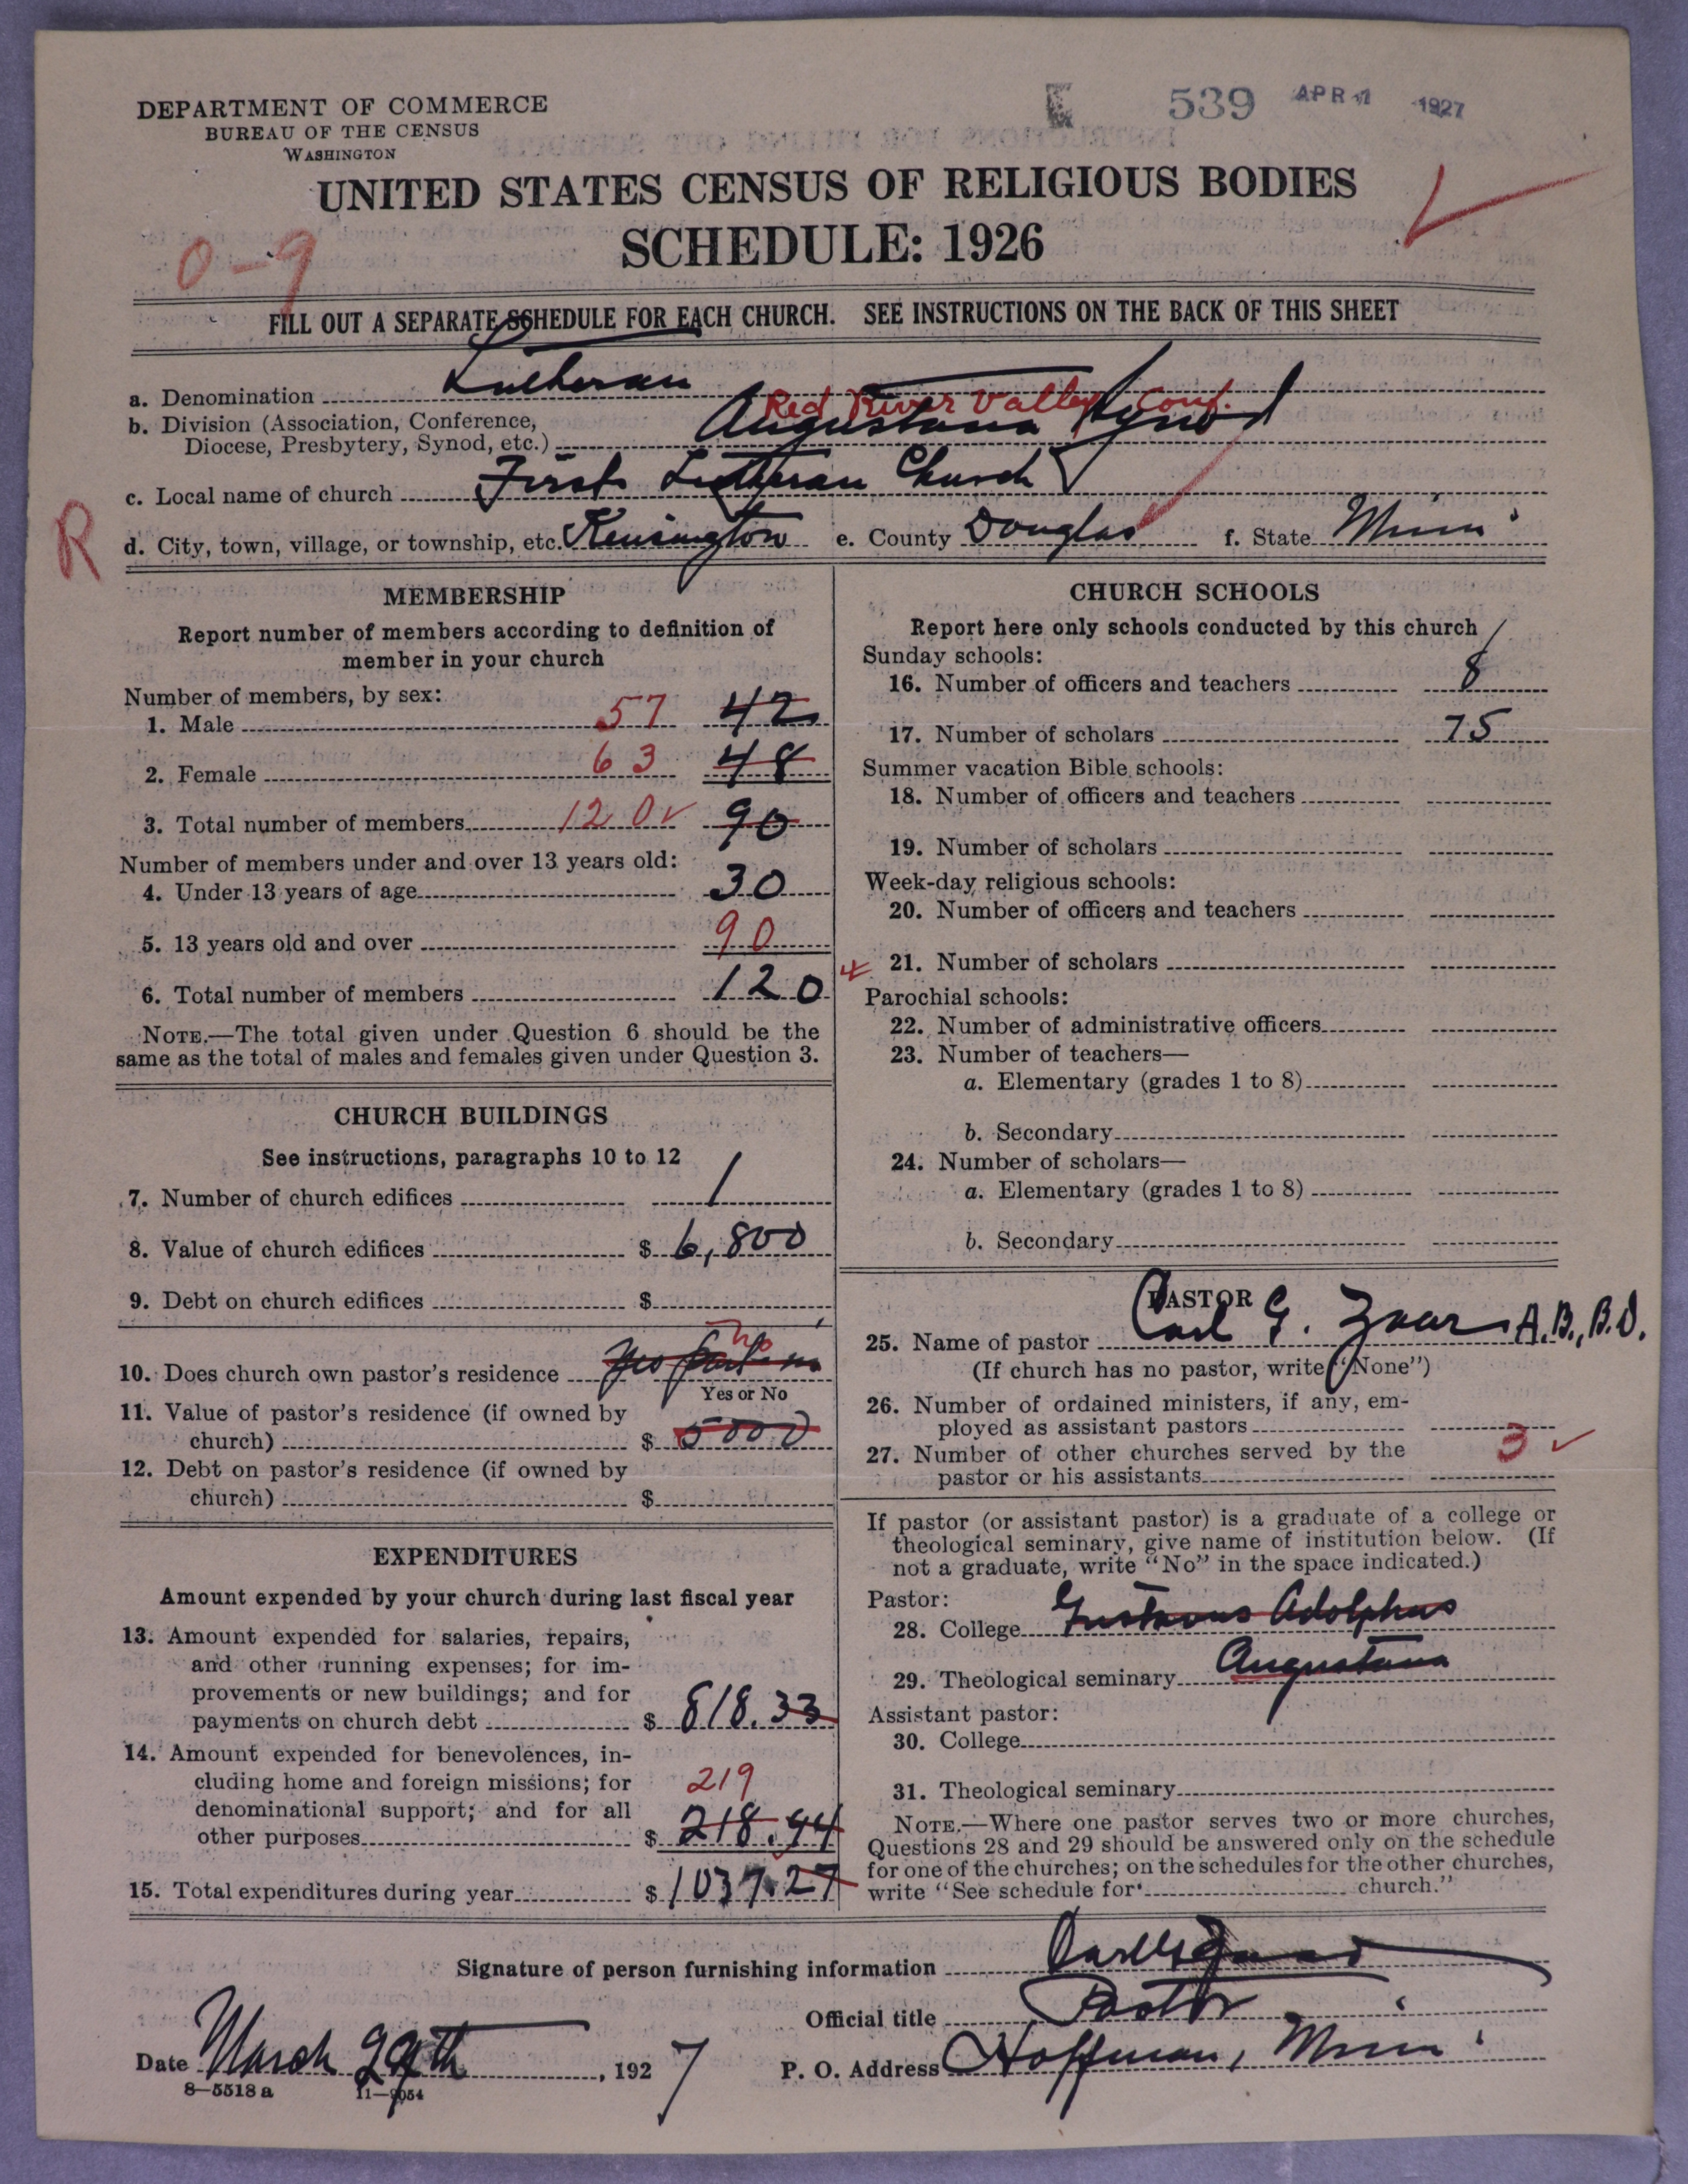 DEPARTMENT OF COMMERCE
BUREAU OF THE CENSUS
WASHINGTON
539 APR 1 1927
UNITED STATES CENSUS OF RELIGIOUS BODIES
SCHEDULE: 1926
0-9
FILL OUT A SEPARATE SCHEDULE FOR EACH CHURCH. SEE INSTRUCTIONS ON THE BACK OF THIS SHEET
a. Denomination Lutheran
Red River Valley Conf.
b. Division (Association, Conference,
Diocese, Presbytery, Synod, etc.) Augustana Synod
c. Local name of church First Lutheran Church
R
d. City, town, village, or township, etc. Kensington e. County Douglas f. State Minn
MEMBERSHIP
Report number of members according to definition of
member in your church
Number of members, by sex:
1. Male 57 42
2. Female 63 48
3. Total number of members 120 90
Number of members under and over 13 years old:
4. Under 13 years of age 30
5. 13 years old and over 90
6. Total number of members 120
NOTE.—The total given under Question 6 should be the
same as the total of males and females given under Question 3.
CHURCH BUILDINGS
See instructions, paragraphs 10 to 12
7. Number of church edifices 1
8. Value of church edifices $ 6,800
9. Debt on church edifices $
10. Does church own pastor's residence Yes no
Yes or No
11. Value of pastor's residence (if owned by
church) $ 5000
12. Debt on pastor's residence (if owned by
church) $
EXPENDITURES
Amount expended by your church during last fiscal year
13. Amount expended for salaries, repairs,
and other running expenses; for im-
provements or new buildings; and for
payments on church debt $ 818.33
14. Amount expended for benevolences, in-
cluding home and foreign missions; for
denominational support; and for all
219
other purposes $ 218.94
15. Total expenditures during year $ 1037.27
CHURCH SCHOOLS
Report here only schools conducted by this church
Sunday schools:
16. Number of officers and teachers 8
17. Number of scholars 75
Summer vacation Bible schools:
18. Number of officers and teachers
19. Number of scholars
Week-day religious schools:
20. Number of officers and teachers
21. Number of scholars
Parochial schools:
22. Number of administrative officers
23. Number of teachers—
a. Elementary (grades 1 to 8)
b. Secondary
24. Number of scholars—
a. Elementary (grades 1 to 8)
b. Secondary
PASTOR
25. Name of pastor Carl G. Zaar A.B., B.D.
(If church has no pastor, write "None")
26. Number of ordained ministers, if any, em-
ployed as assistant pastors
27. Number of other churches served by the
pastor or his assistants 3
If pastor (or assistant pastor) is a graduate of a college or
theological seminary, give name of institution below. (If
not a graduate, write "No" in the space indicated.)
Pastor:
28. College Gustavus Adolphus
29. Theological seminary Augustana
Assistant pastor:
30. College
31. Theological seminary
NOTE.—Where one pastor serves two or more churches,
Questions 28 and 29 should be answered only on the schedule
for one of the churches; on the schedules for the other churches,
write "See schedule for church."
Signature of person furnishing information Carl G Zaar
Official title Pastor
Date March 29th, 1927 P. O. Address Hoffman, Minn
8—5518 a 11—9054